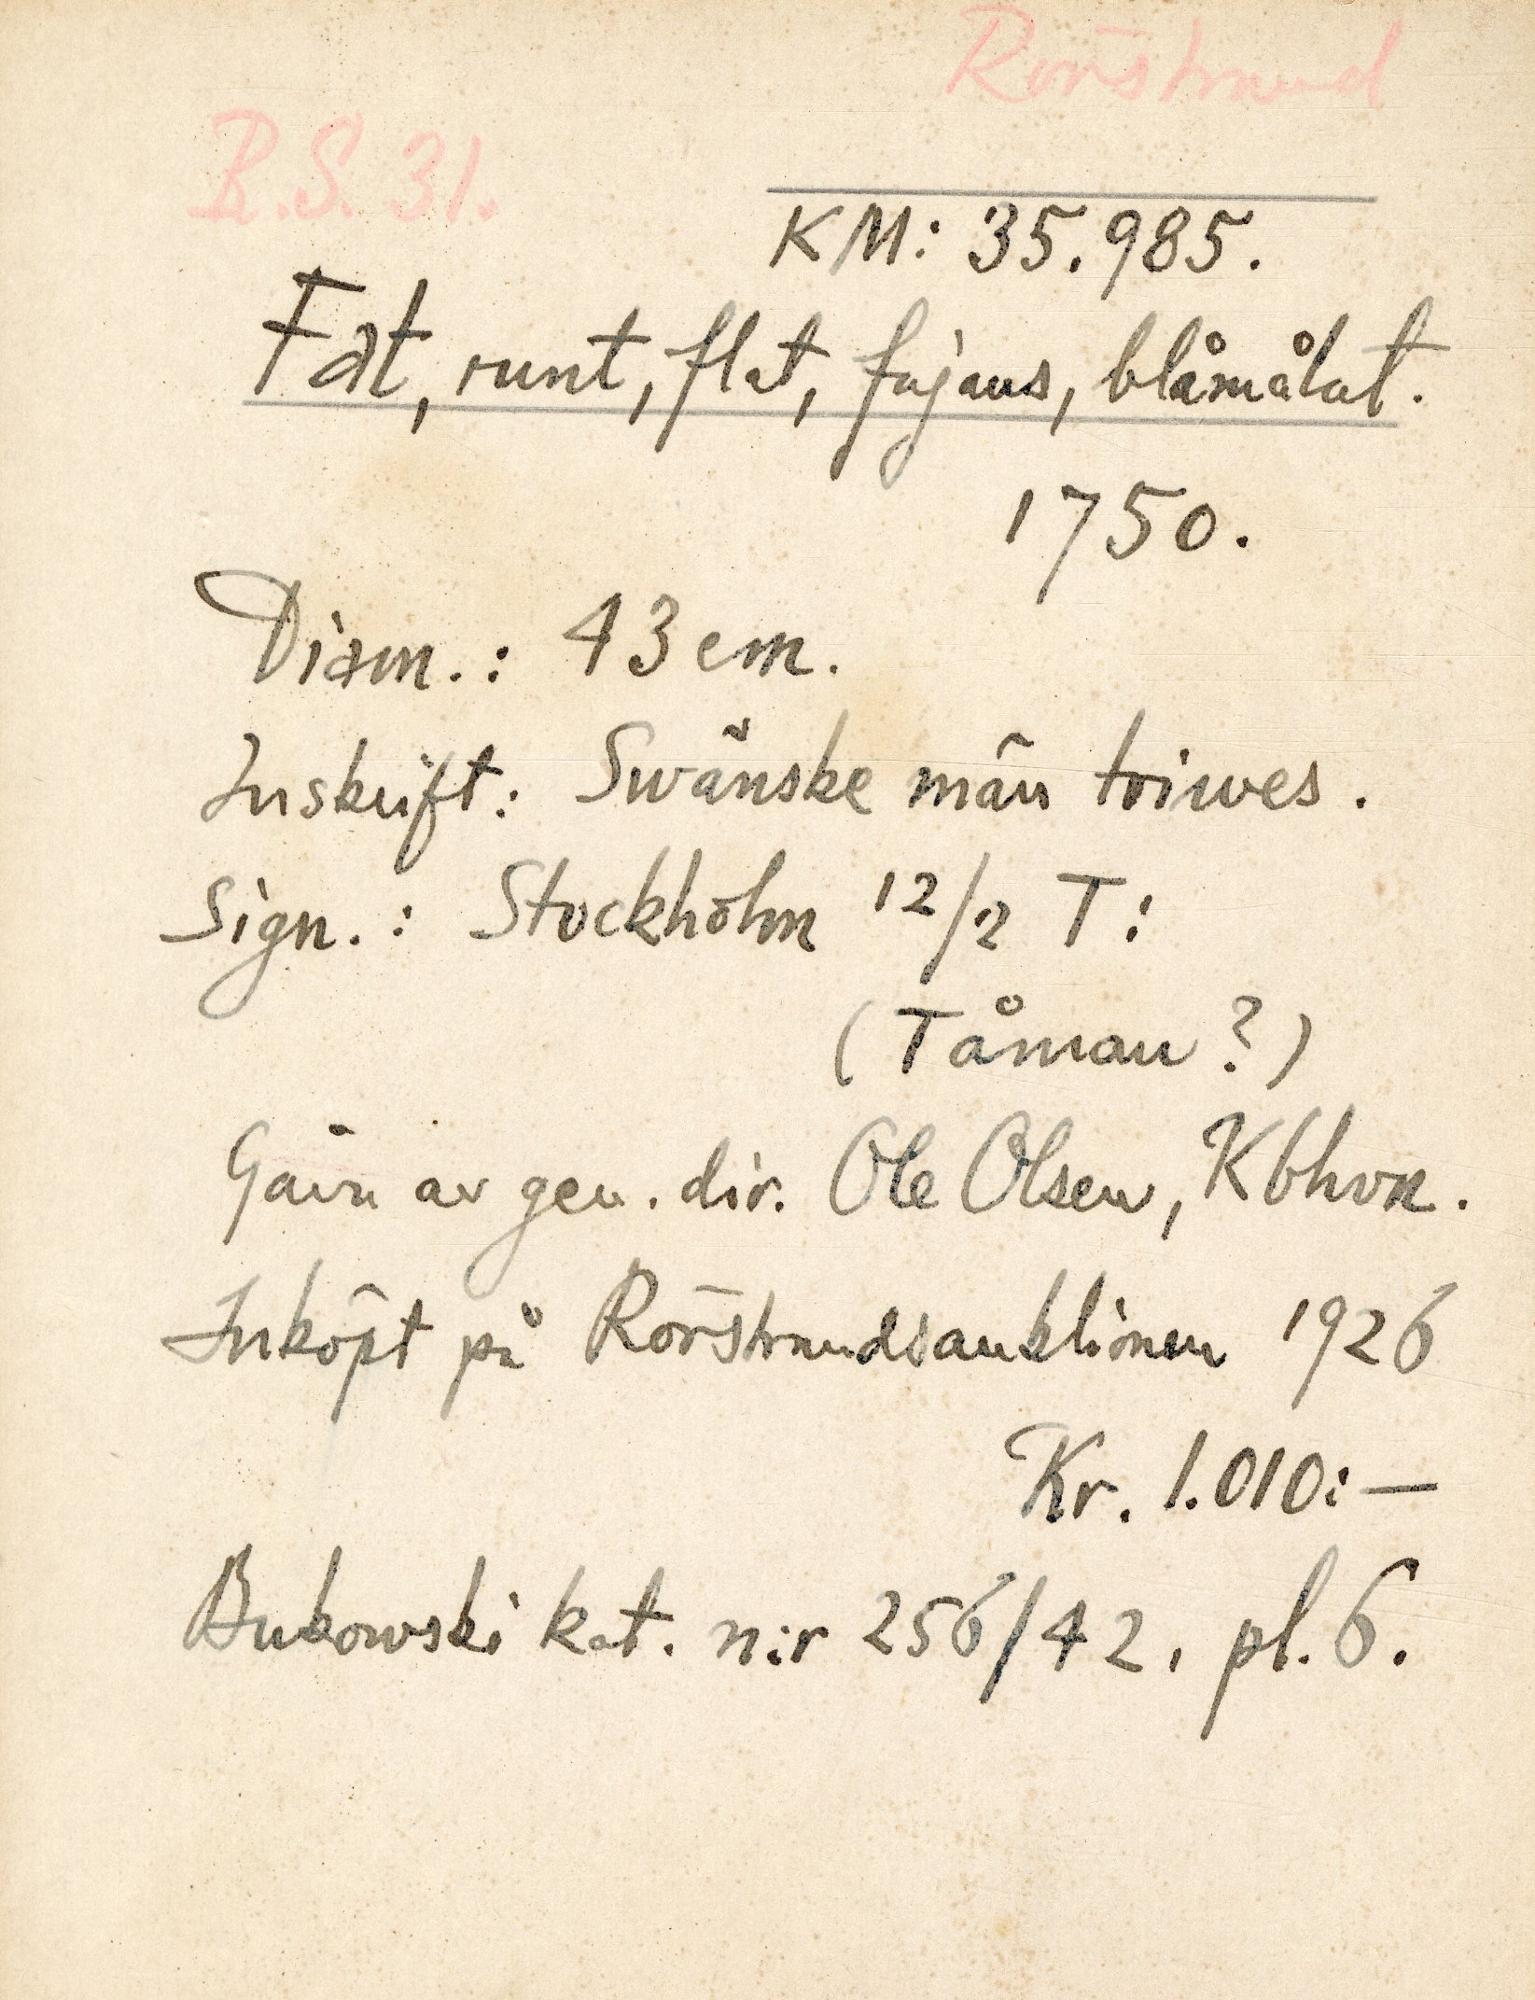 Rörstrand
R.S. 31.
KM: 35.985.
Fat, runt, flat, fajans, blåmålat.
1750.
Diam.: 43 cm.
Inskrift: Swänske män triwes.
Sign.: Stockholm 12/2 T:
(Tåman?)
Gåva av gen. dir. Ole Olsen, Kbhvn.
Inköpt på Rörstrandsauktionen 1926
Kr. 1.010:—
Bukowski kat. n:r 256/42, pl. 6.